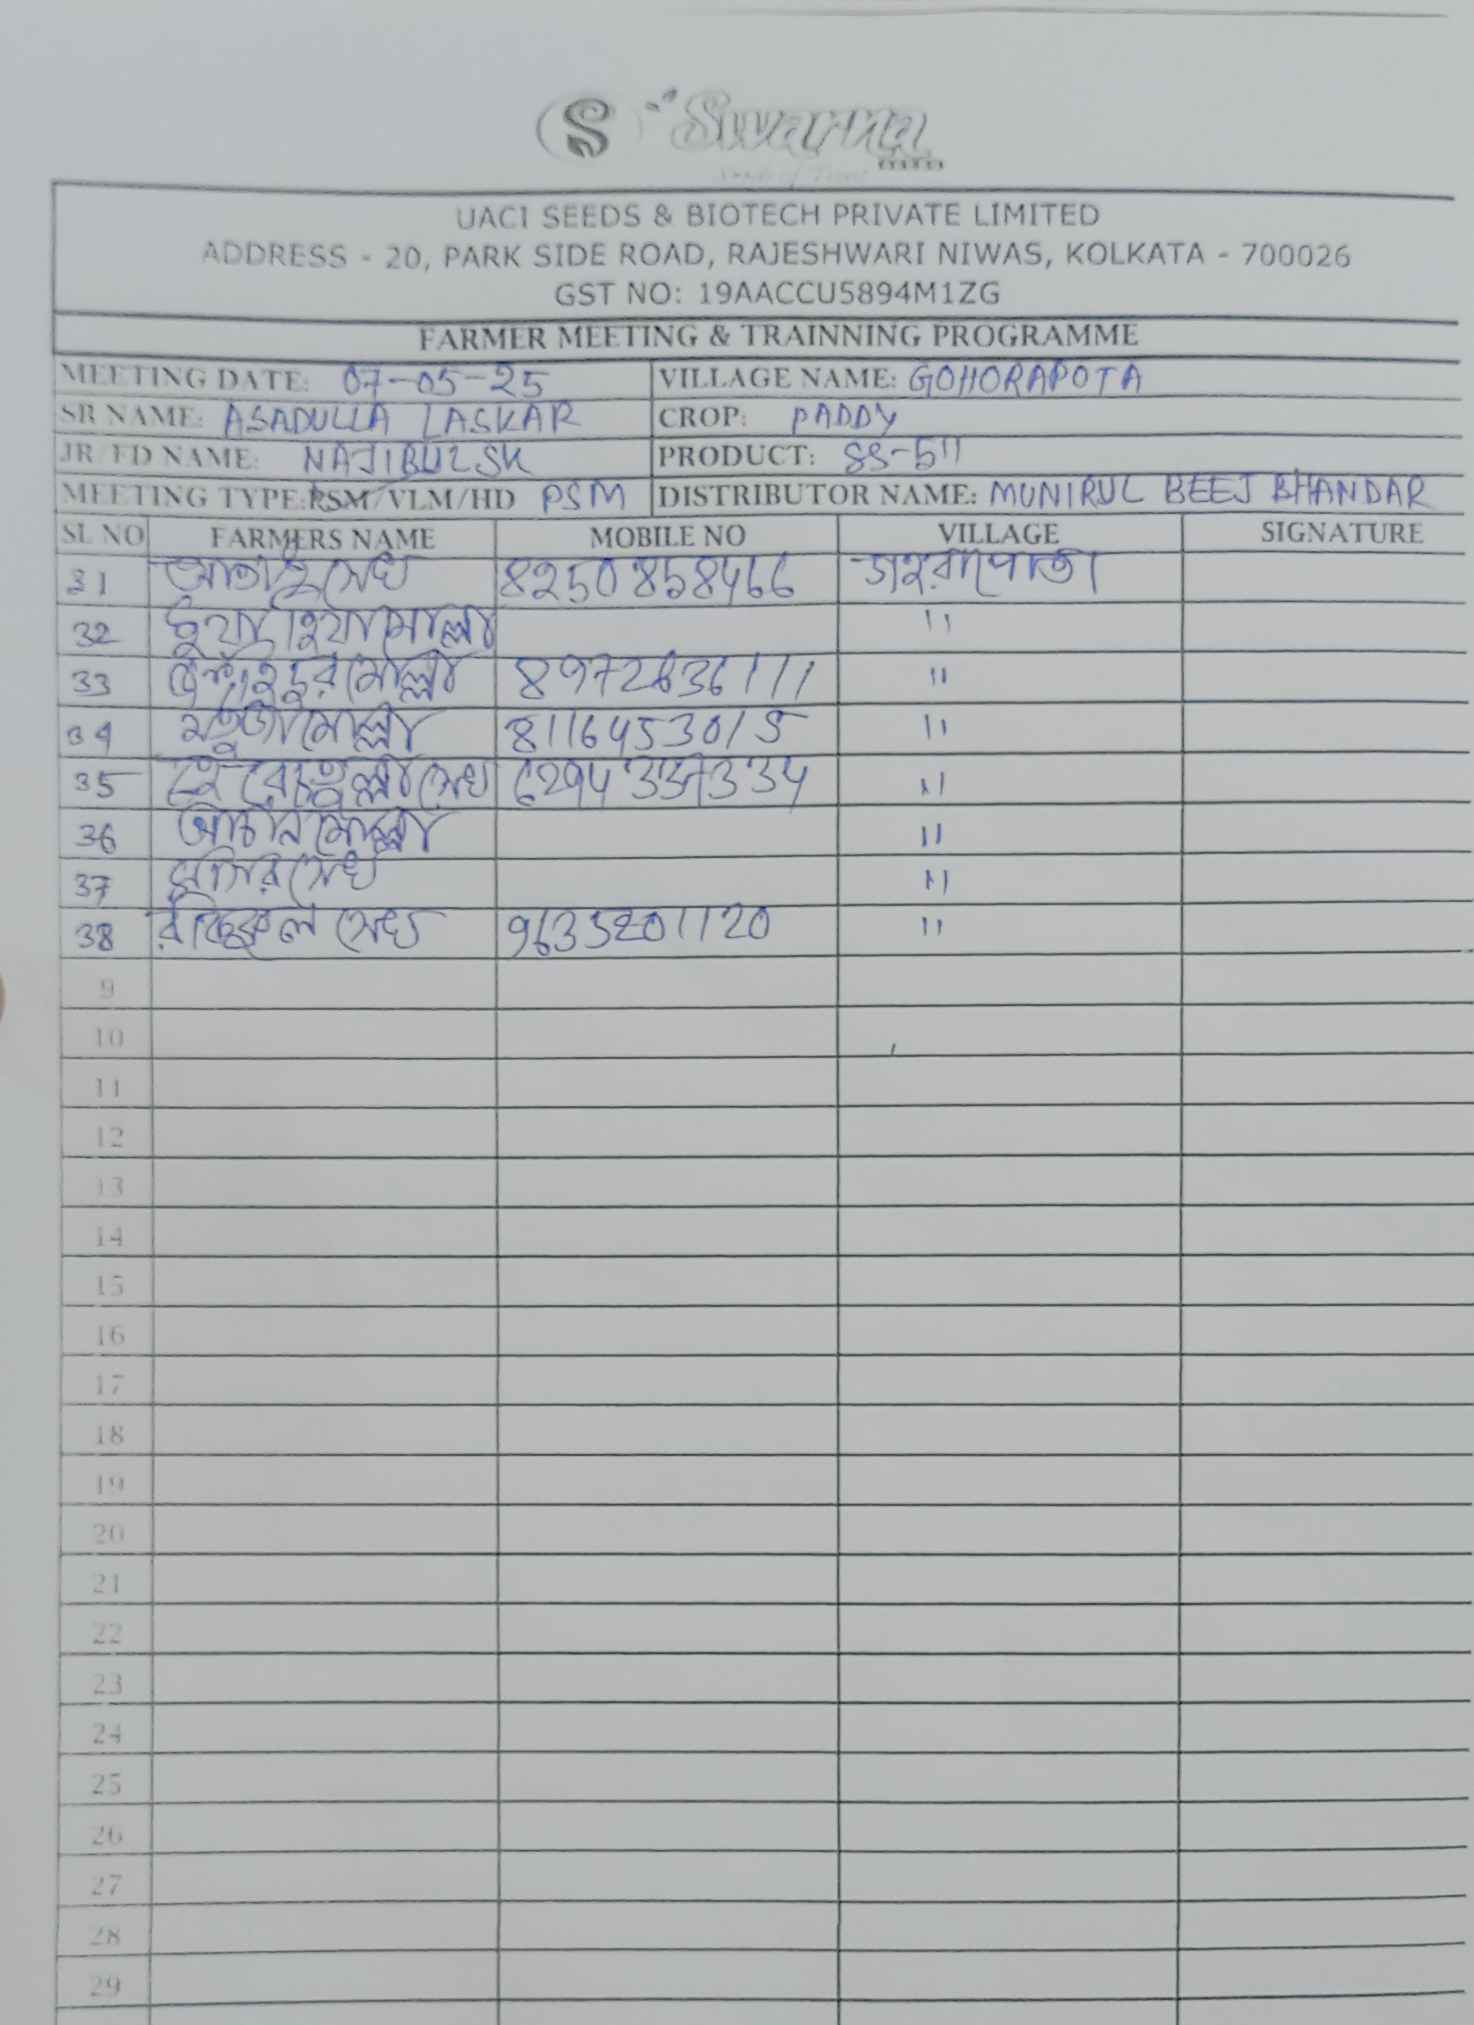 S Swarna
Seeds of Trust
UACI SEEDS & BIOTECH PRIVATE LIMITED
ADDRESS - 20, PARK SIDE ROAD, RAJESHWARI NIWAS, KOLKATA - 700026
GST NO: 19AACCU5894M1ZG
FARMER MEETING & TRAINNING PROGRAMME
MEETING DATE: 07-05-25 VILLAGE NAME: GOHORAPOTA
SR NAME: ASADULLA LASKAR CROP: PADDY
JR/FD NAME: NAJIBUL SK PRODUCT: SS-511
MEETING TYPE: PSM/VLM/HD PSM DISTRIBUTOR NAME: MUNIRUL BEEJ BHANDAR
SL NO FARMERS NAME MOBILE NO VILLAGE SIGNATURE
31 সেখ 8250858466
32 মোল্লা "
33 মোল্লা 8972636111 "
34 মোল্লা 8116453015 "
35 সেখ 6294337334 "
36 মোল্লা "
37 সেখ "
38 সেখ 9635201120 "
9
10
11
12
13
14
15
16
17
18
19
20
21
22
23
24
25
26
27
28
29